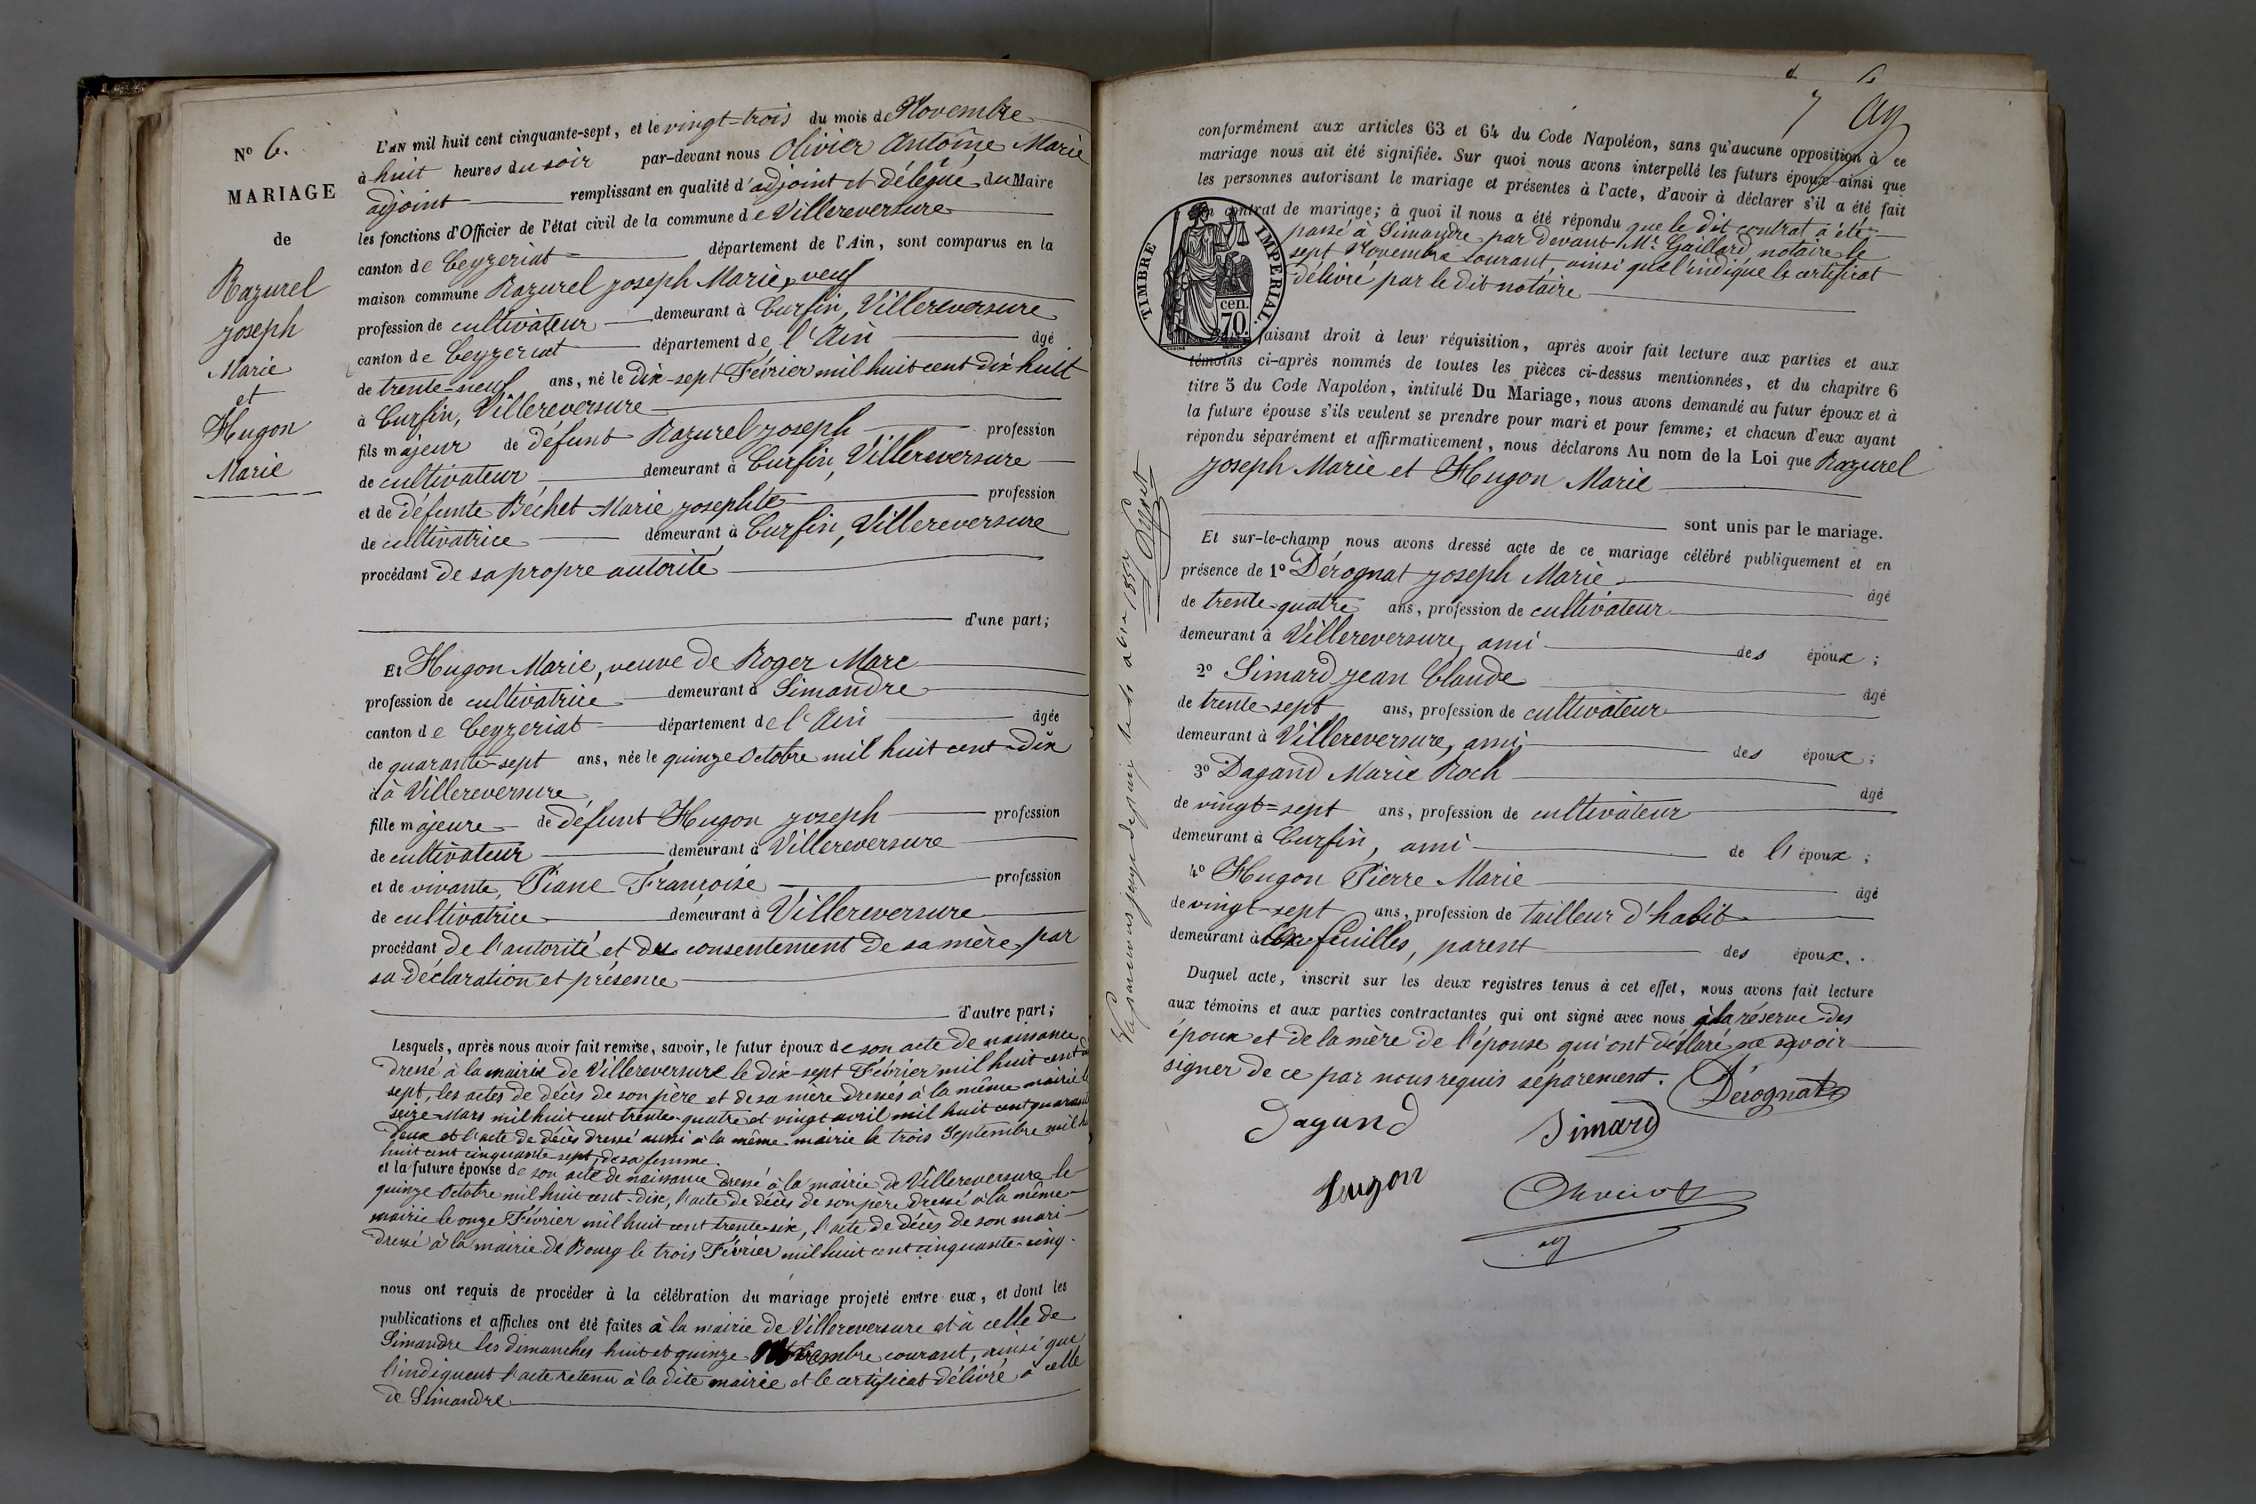 N° 6.
MARIAGE
de
Razurel
Joseph
Marie
et
Hugon
Marie
L'AN mil huit cent cinquante-sept, et le vingt-trois du mois de Novembre
à huit heures du soir par-devant nous Olivier Antoine Marie
adjoint remplissant en qualité d'adjoint et délégué du Maire
les fonctions d'Officier de l'état civil de la commune de Villereversure
canton de Ceyzeriat département de l'Ain, sont comparus en la
maison commune Razurel Joseph Marie, veuf
profession de cultivateur demeurant à Curfin, Villereversure
canton de Ceyzeriat département de l'Ain âgé
de trente-neuf ans, né le Dix-sept Février mil huit cent dix huit
à Curfin, Villereversure
fils majeur de défunt Razurel Joseph profession
de cultivateur demeurant à Curfin, Villereversure
et de défunte Béchet Marie Josephte profession
de cultivatrice demeurant à Curfin, Villereversure
procédant de sa propre autorité
d'une part;
Et Hugon Marie, veuve de Roger Marc
profession de cultivatrice demeurant à Simandre
canton de Ceyzeriat département de l'Ain âgée
de quarante-sept ans, née le quinze Octobre mil huit cent-dix
à Villereversure
fille majeure de défunt Hugon Joseph profession
de cultivateur demeurant à Villereversure
et de vivante, Piane Françoise profession
de cultivatrice demeurant à Villereversure
procédant de l'autorité et du consentement de sa mère, par
sa déclaration et présence
d'autre part;
Lesquels, après nous avoir fait remise, savoir, le futur époux de son acte de naissance
dressé à la mairie de Villereversure le dix-sept Février mil huit cent
sept, les actes de décès de son père et de sa mère dressés à la même mairie le
seize Mars mil huit cent trente-quatre et vingt avril mil huit cent quarante
deux et l'acte de décès dressé aussi à la même mairie le trois Septembre mil
huit cent cinquante-sept, de sa femme.
et la future épouse de son acte de naissance dressé à la mairie de Villereversure le
quinze Octobre mil huit cent-dix, l'acte de décès de son père dressé à la même
mairie le onze Février mil huit cent trente-six, l'acte de décès de son mari
dressé à la mairie de Bourg le trois Février mil huit cent cinquante-cinq.
nous ont requis de procéder à la célébration du mariage projeté entre eux, et dont les
publications et affiches ont été faites à la mairie de Villereversure et à celle de
Simandre les dimanches huit et quinze Novembre courant, ainsi que
l'indiquent l'acte retenu à la dite mairie et le certificat délivré à celle
de Simandre
7
conformément aux articles 63 et 64 du Code Napoléon, sans qu'aucune opposition à ce
mariage nous ait été signifiée. Sur quoi nous avons interpellé les futurs époux ainsi que
les personnes autorisant le mariage et présentes à l'acte, d'avoir à déclarer s'il a été fait
un contrat de mariage; à quoi il nous a été répondu que le dit contrat a été
passé à Simandre par devant Mr. Gaillard, notaire le
sept Novembre courant, ainsi que l'indique le certificat
délivré par le dit notaire
TIMBRE IMPÉRIAL.
cen.
70.
faisant droit à leur réquisition, après avoir fait lecture aux parties et aux
témoins ci-après nommés de toutes les pièces ci-dessus mentionnées, et du chapitre 6
titre 5 du Code Napoléon, intitulé Du Mariage, nous avons demandé au futur époux et à
la future épouse s'ils veulent se prendre pour mari et pour femme; et chacun d'eux ayant
répondu séparément et affirmativement, nous déclarons Au nom de la Loi que Razurel
Joseph Marie et Hugon Marie
sont unis par le mariage.
Et sur-le-champ nous avons dressé acte de ce mariage célébré publiquement et en
présence de 1° Dérognat Joseph Marie âgé
de trente-quatre ans, profession de cultivateur
demeurant à Villereversure, ami des époux;
2° Simard Jean Claude âgé
de trente sept ans, profession de cultivateur
demeurant à Villereversure, ami des époux;
3° Dagand Marie Roch âgé
de vingt-sept ans, profession de cultivateur
demeurant à Curfin, ami de l'époux;
4° Hugon Pierre Marie âgé
de vingt-sept ans, profession de tailleur d'habit
demeurant à feuilles, parent des époux.
Duquel acte, inscrit sur les deux registres tenus à cet effet, nous avons fait lecture
aux témoins et aux parties contractantes qui ont signé avec nous à la réserve des
époux et de la mère de l'épouse qui ont déclaré ne savoir
signer de ce par nous requis séparément.
Dérognat
Dagand Simard
hugon Olivier